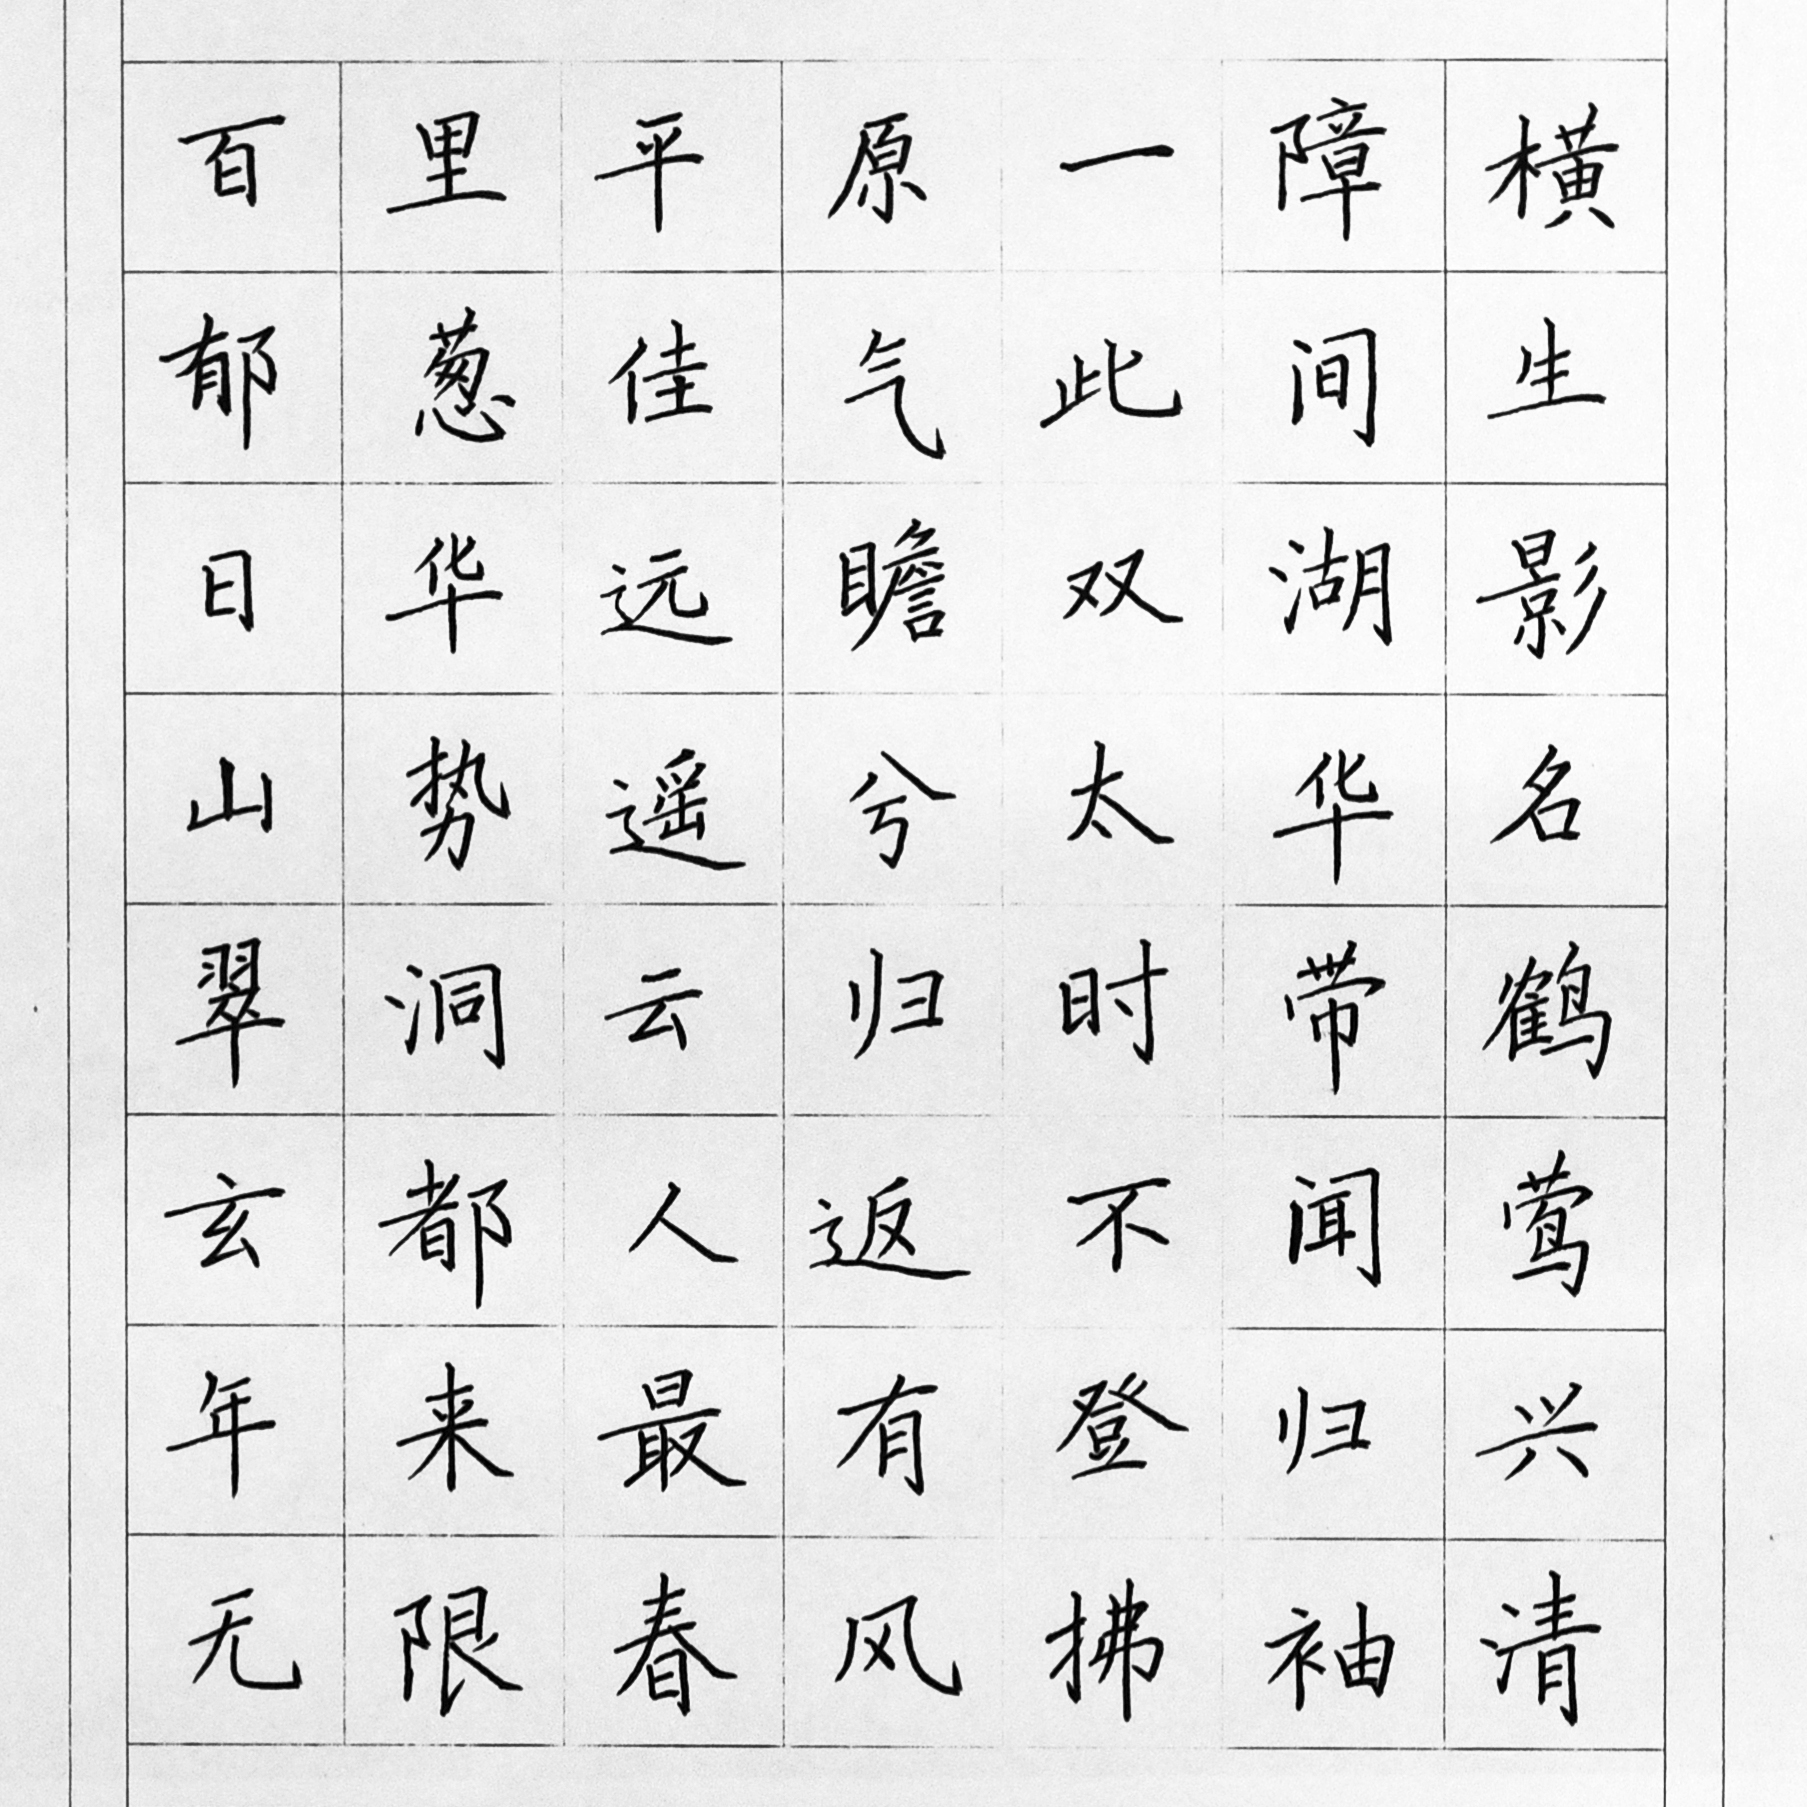 百里平原一障横
郁葱佳气此间生
日华远瞻双湖影
山势遥兮太华名
翠洞云归时带鹤
玄都人返不闻莺
年来最有登归兴
无限春风拂袖清